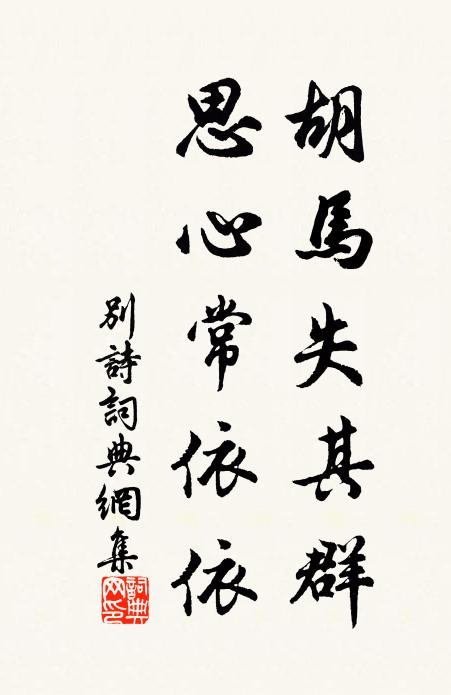 胡馬失其群
思心常依依
別詩詞典網集
詞典
网印